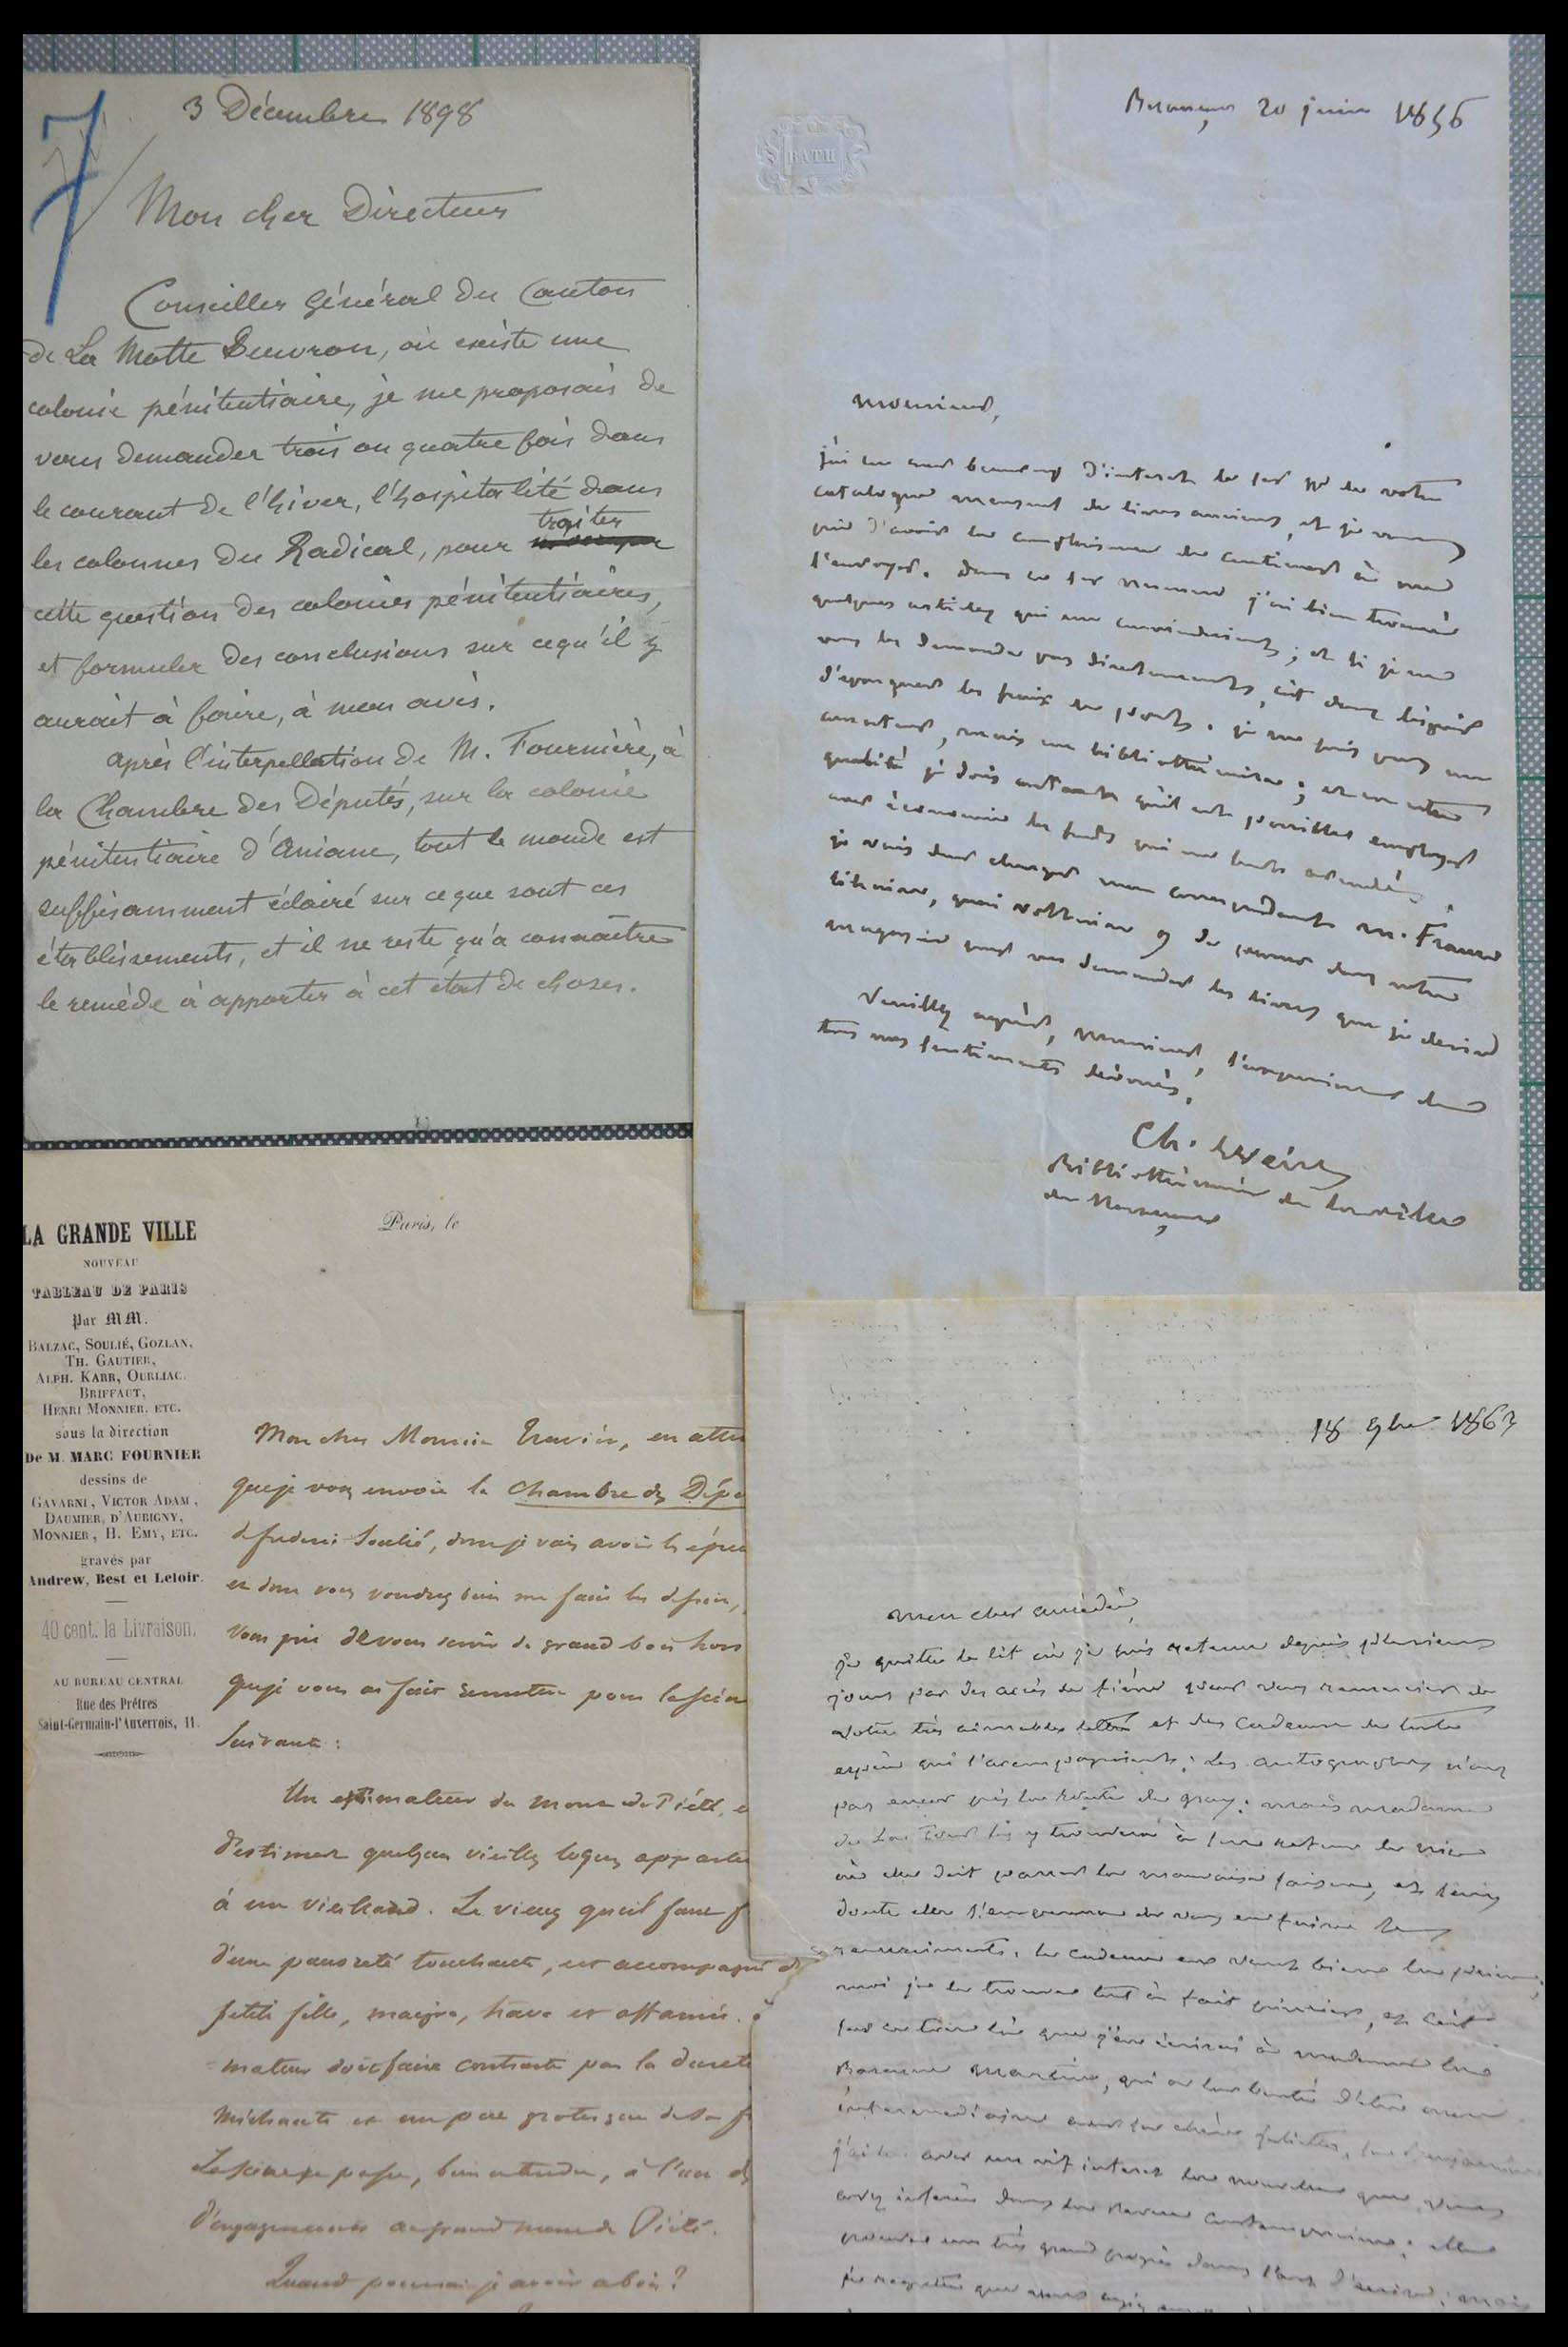 7
3 Décembre 1898
Mon cher Directeur
Conseiller Général du Canton
de La Motte Beuvron, où existe une
colonie pénitentiaire, je me proposais de
vous demander trois ou quatre fois dans
le courant de l'hiver, l'hospitalité dans
les colonnes du Radical, pour traiter
cette question des colonies pénitentiaires,
et formuler des conclusions sur ce qu'il y
aurait à faire, à mon avis.
après l'interpellation de M. Fournière, à
la Chambre des Députés, sur la colonie
pénitentiaire d'Aniane, tout le monde est
suffisamment éclairé sur ce que sont ces
établissements, et il ne reste qu'à connaître
le remède à apporter à cet état de choses.
BATH
Besançon 20 juin 1856
Monsieur,
j'ai lu avec beaucoup d'interet le 1er no de votre
catalogue mensuel de livres anciens, et je vous
prie d'avoir la complaisance de continuer à me
l'envoyer. Dans ce 1er numero j'ai bien trouvé
quelques articles qui me conviendraient; et si je ne
vous les demande pas directement, c'est dans l'espoir
d'epargner les frais de port. je ne suis pas un
amateur, mais un bibliothécaire; et en cette
qualité je dois autant qu'il est possible employer
avec économie les fonds qui me sont
je vais donc charger mon correspondant M. Franck
libraire, quai voltaire 9 de passer dans votre
magasin pour vous demander les livres que je desire
Veuillez agréer, Monsieur, l'expression de
tous mes sentiments dévoués.
Ch. Weiss
Bibliothécaire de la ville
de Besançon
LA GRANDE VILLE
NOUVEAU
TABLEAU DE PARIS
Par MM.
BALZAC, SOULIÉ, GOZLAN,
TH. GAUTIER,
ALPH. KARR, OURLIAC,
BRIFFAUT,
HENRI MONNIER, ETC.
sous la direction
De M. MARC FOURNIER
dessins de
GAVARNI, VICTOR ADAM,
DAUMIER, D'AUBIGNY,
MONNIER, H. EMY, ETC.
gravés par
Andrew, Best et Leloir.
40 cent. la Livraison.
AU BUREAU CENTRAL
Rue des Prêtres
Saint-Germain-l'Auxerrois, 11.
Paris, le
Mon cher Monsieur Traviès, en atten
que je vous envoie la Chambre des Dépu
de frederic Soulié, dont je vais avoir les épreu
et dont vous voudrez bien me faire les dessins,
vous prie de vous servir du grand bois
que je vous ai fait remettre pour la scène
Suivante :
Un estimateur du mont de Piété,
d'estimer quelques vieilles loques apparte
à un vieillard. Le vieux qu'il faut f
d'une pauvreté touchante, est accompagné d
petite fille, maigre, hâve et affamée.
mateur doit faire contraste par la dureté
méchante et un peu grotesque de sa f
La scène se passe, bien entendu, à l'un d
d'engagements au grand mont de Piété.
Quand pourrai-je avoir ce bois?
18 9bre 1863
Mon cher amédée,
je quitte le lit où je suis retenu depuis plusieurs
jours par des accès de fièvre pour vous remercier de
votre très aimable lettre et des cadeaux de toute
espèce qui l'accompagnaient. Les autographes n'ont
pas encor pris la route de gray; mais madame
de La Tour les y trouvera à son retour de nice
où elle doit passer la mauvaise saison, et sans
doute elle s'empressera de vous en faire ses
remerciments.
moi je le trouve tout à fait
que j'en écrirai à madame la
Baronne Martin, qui a la bonté d'être mon
intermediaire avec
j'ai lu avec un vif interet la nouvelle que vous
avez insérée dans la Revue Contemporaine; elle
prouve un très grand progrès dans l'art d'écrire; mais
je regrette que vous ayez